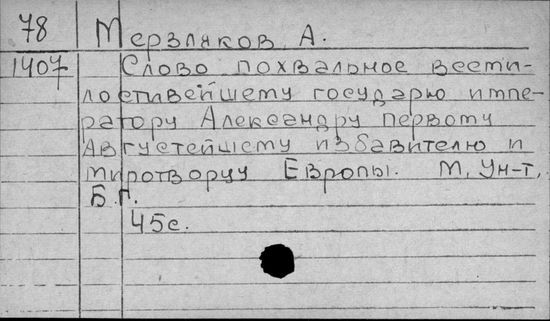 78 Мерзляков, А.
1407 Слово похвальное всеми-
лостивейшему государю импе-
ратору Александру первому
Августейшему избавителю и
миротворцу Европы. М, Ун-т,
Б.г.
45с.